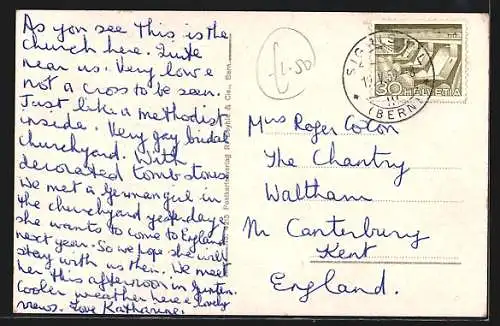 As you see this is the
church here. Quite
near us. Very low &
not a cross to be seen.
Just like a methodist
inside. Very gay bridal
churchyard. With
decorated tombstones
We met a German girl in
the churchyard yesterday
she wants to come to England
next year. So we hope she will
stay with us then. We meet
her this afternoon in Gunten.
Cooler weather here & lovely
views. Love Katharine.
Postkartenverlag
& Cie., Bern
1.50
(BERN)
30 HELVETIA
Mrs Roger Coton
The Chantry
Waltham
Nr Canterbury
Kent
England.